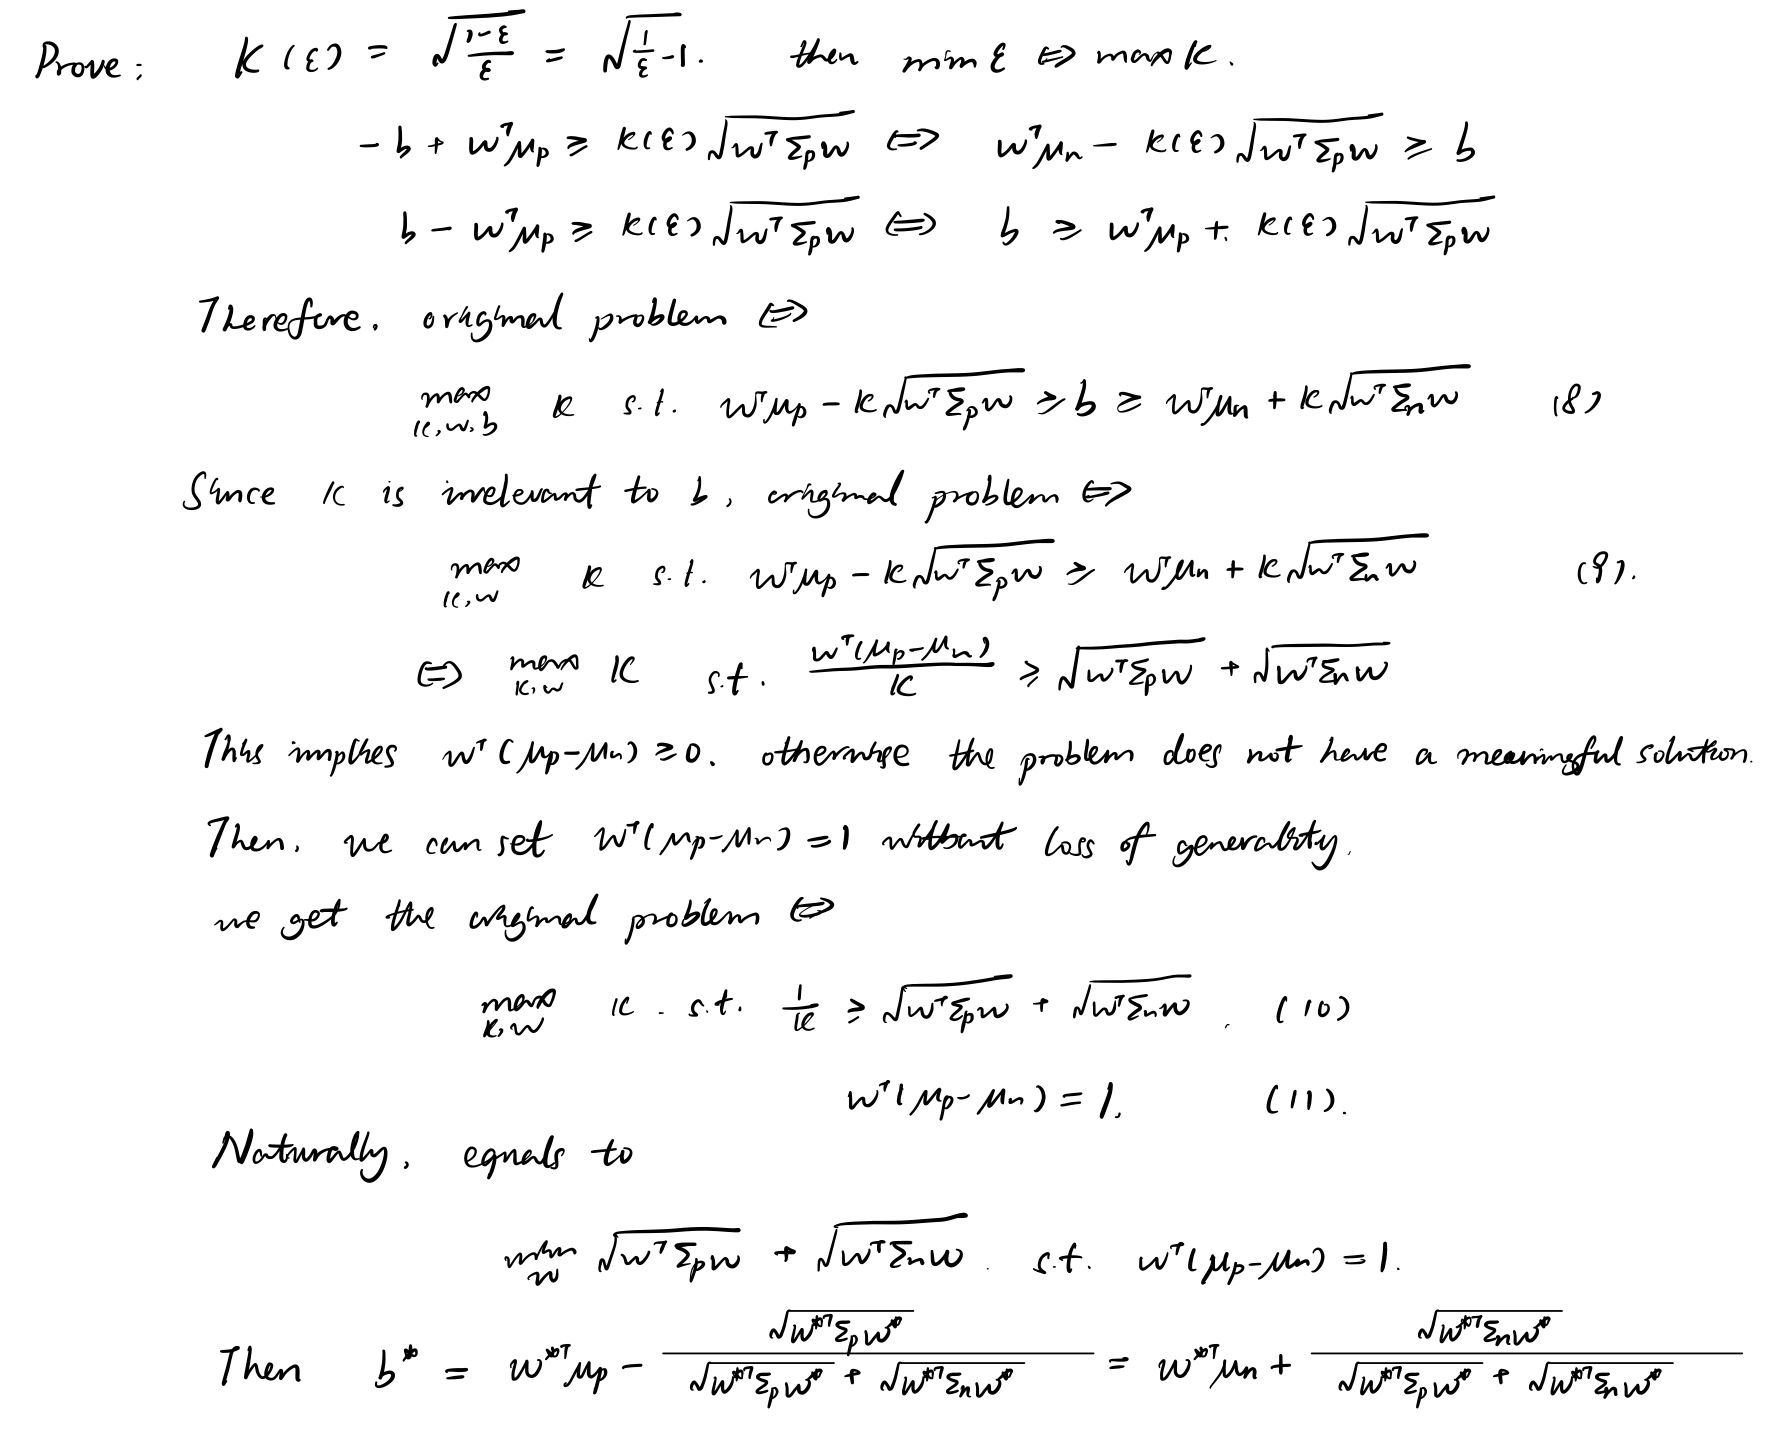 Prove: K(ε) = √((1-ε)/ε) = √(1/ε - 1). then min ε ⇔ max K.
-b + wᵀμp ≥ K(ε)√(wᵀΣpw) ⇔ wᵀμn - K(ε)√(wᵀΣpw) ≥ b
b - wᵀμp ≥ K(ε)√(wᵀΣpw) ⇔ b ≥ wᵀμp + K(ε)√(wᵀΣpw)
Therefore. original problem ⇔
max K,w,b K s.t. wᵀμp - K√(wᵀΣpw) ≥ b ≥ wᵀμn + K√(wᵀΣnw) (8)
Since K is irrelevant to b, original problem ⇔
max K,w K s.t. wᵀμp - K√(wᵀΣpw) ≥ wᵀμn + K√(wᵀΣnw) (9).
⇔ max K,w K s.t. wᵀ(μp-μn)/K ≥ √(wᵀΣpw) + √(wᵀΣnw)
This implies wᵀ(μp-μn) ≥ 0. otherwise the problem does not have a meaningful solution.
Then. we can set wᵀ(μp-μn) = 1 without loss of generality.
we get the original problem ⇔
max K,w K. s.t. 1/K ≥ √(wᵀΣpw) + √(wᵀΣnw). (10)
wᵀ(μp-μn) = 1. (11).
Naturally. equals to
min w √(wᵀΣpw) + √(wᵀΣnw). s.t. wᵀ(μp-μn) = 1.
Then b* = w*ᵀμp - √(w*ᵀΣpw*)/(√(w*ᵀΣpw*) + √(w*ᵀΣnw*)) = w*ᵀμn + √(w*ᵀΣnw*)/(√(w*ᵀΣpw*) + √(w*ᵀΣnw*))